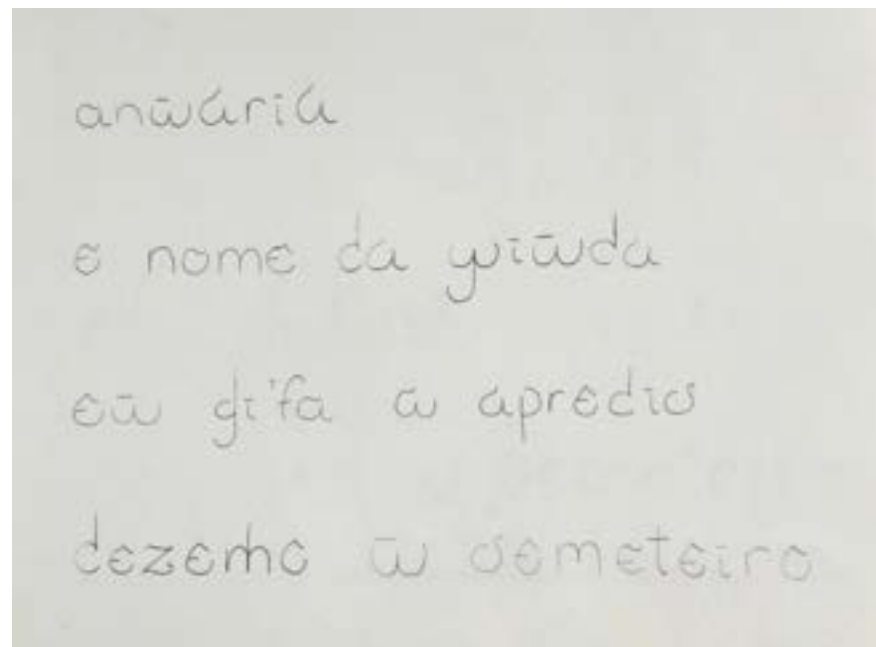 anūária
e nome da yviūda
eū gifa a apredio
dezenho ū semeteiro